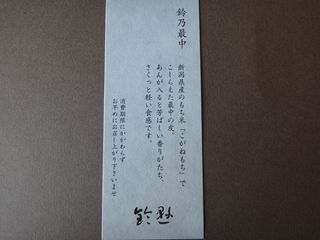 鈴乃最中
新潟県産のもち米「こがねもち」で
こしらえた最中の皮。
あんが入ると芳ばしい香りがたち、
さくっと軽い食感です。
消費期限にかかわらず
お早めにお召し上がり下さいませ
鈴懸